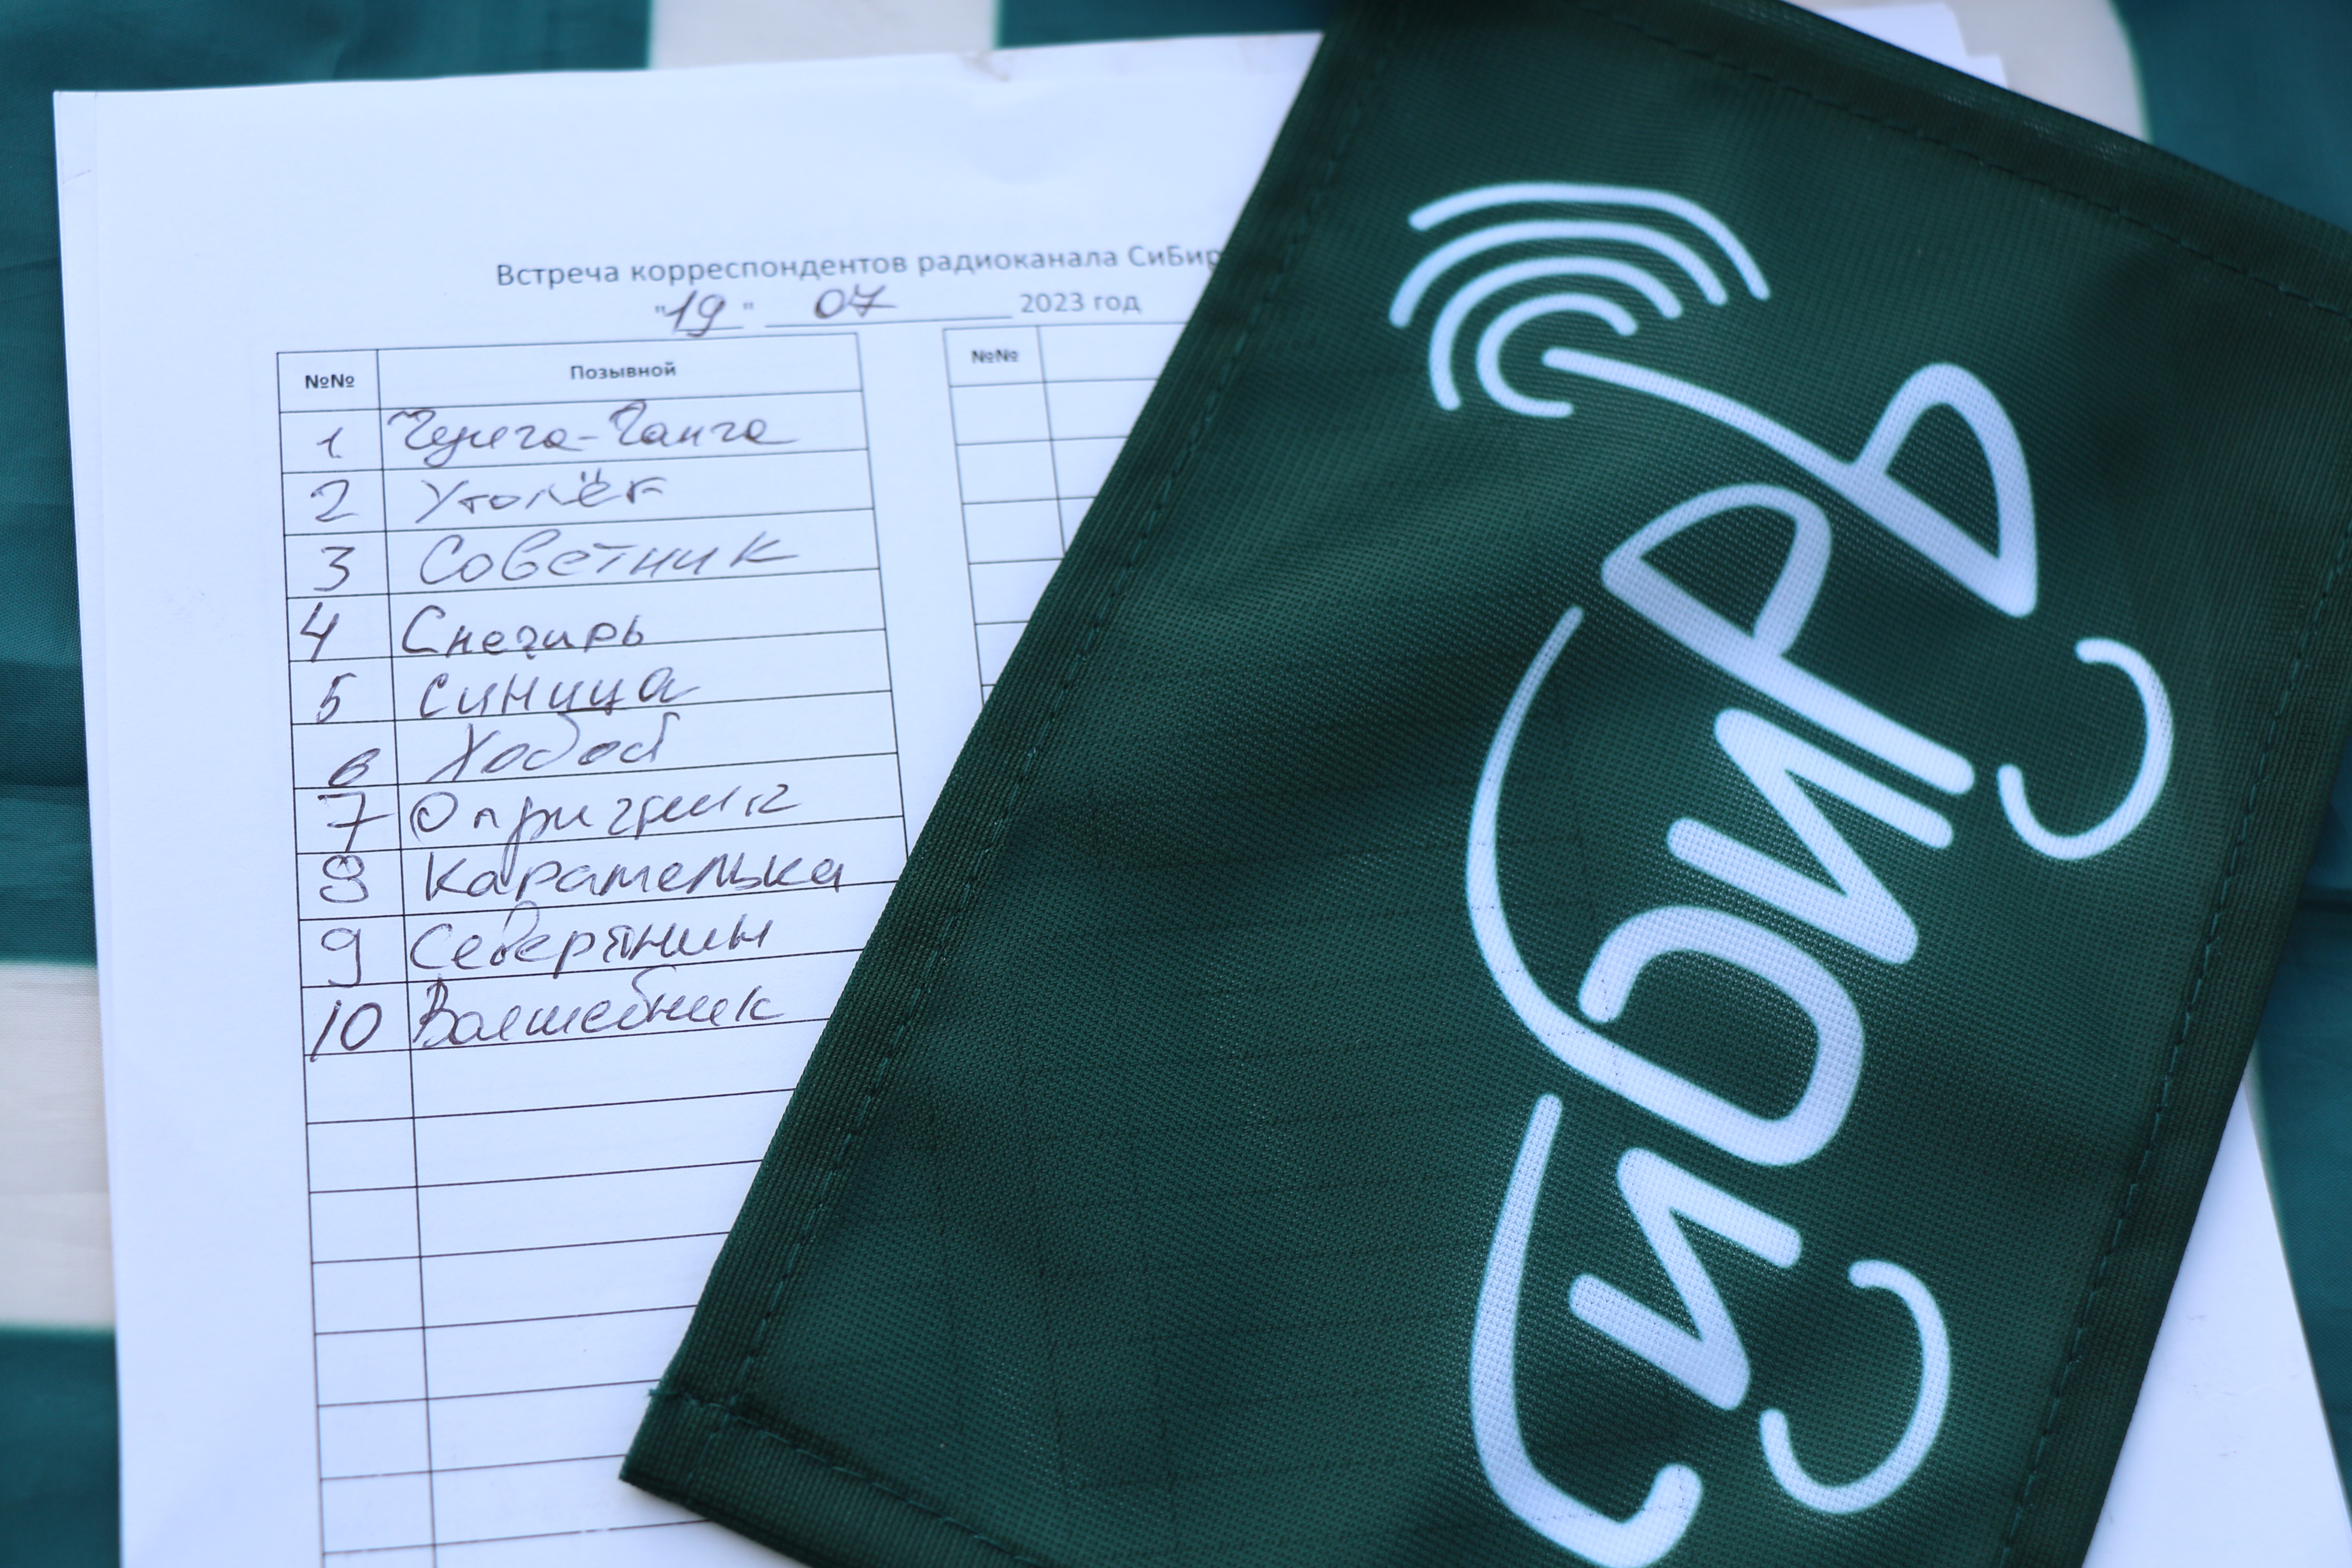 Встреча корреспондентов радиоканала СиБир
"19" 07 2023 год
№№ Позывной №№
1 Чунга-Чанга
2 Уголёк
3 Советник
4 Снегирь
5 Синица
6 Хобот
7
8 Карамелька
9 Северянин
10 Волшебник
СИБИРЬ